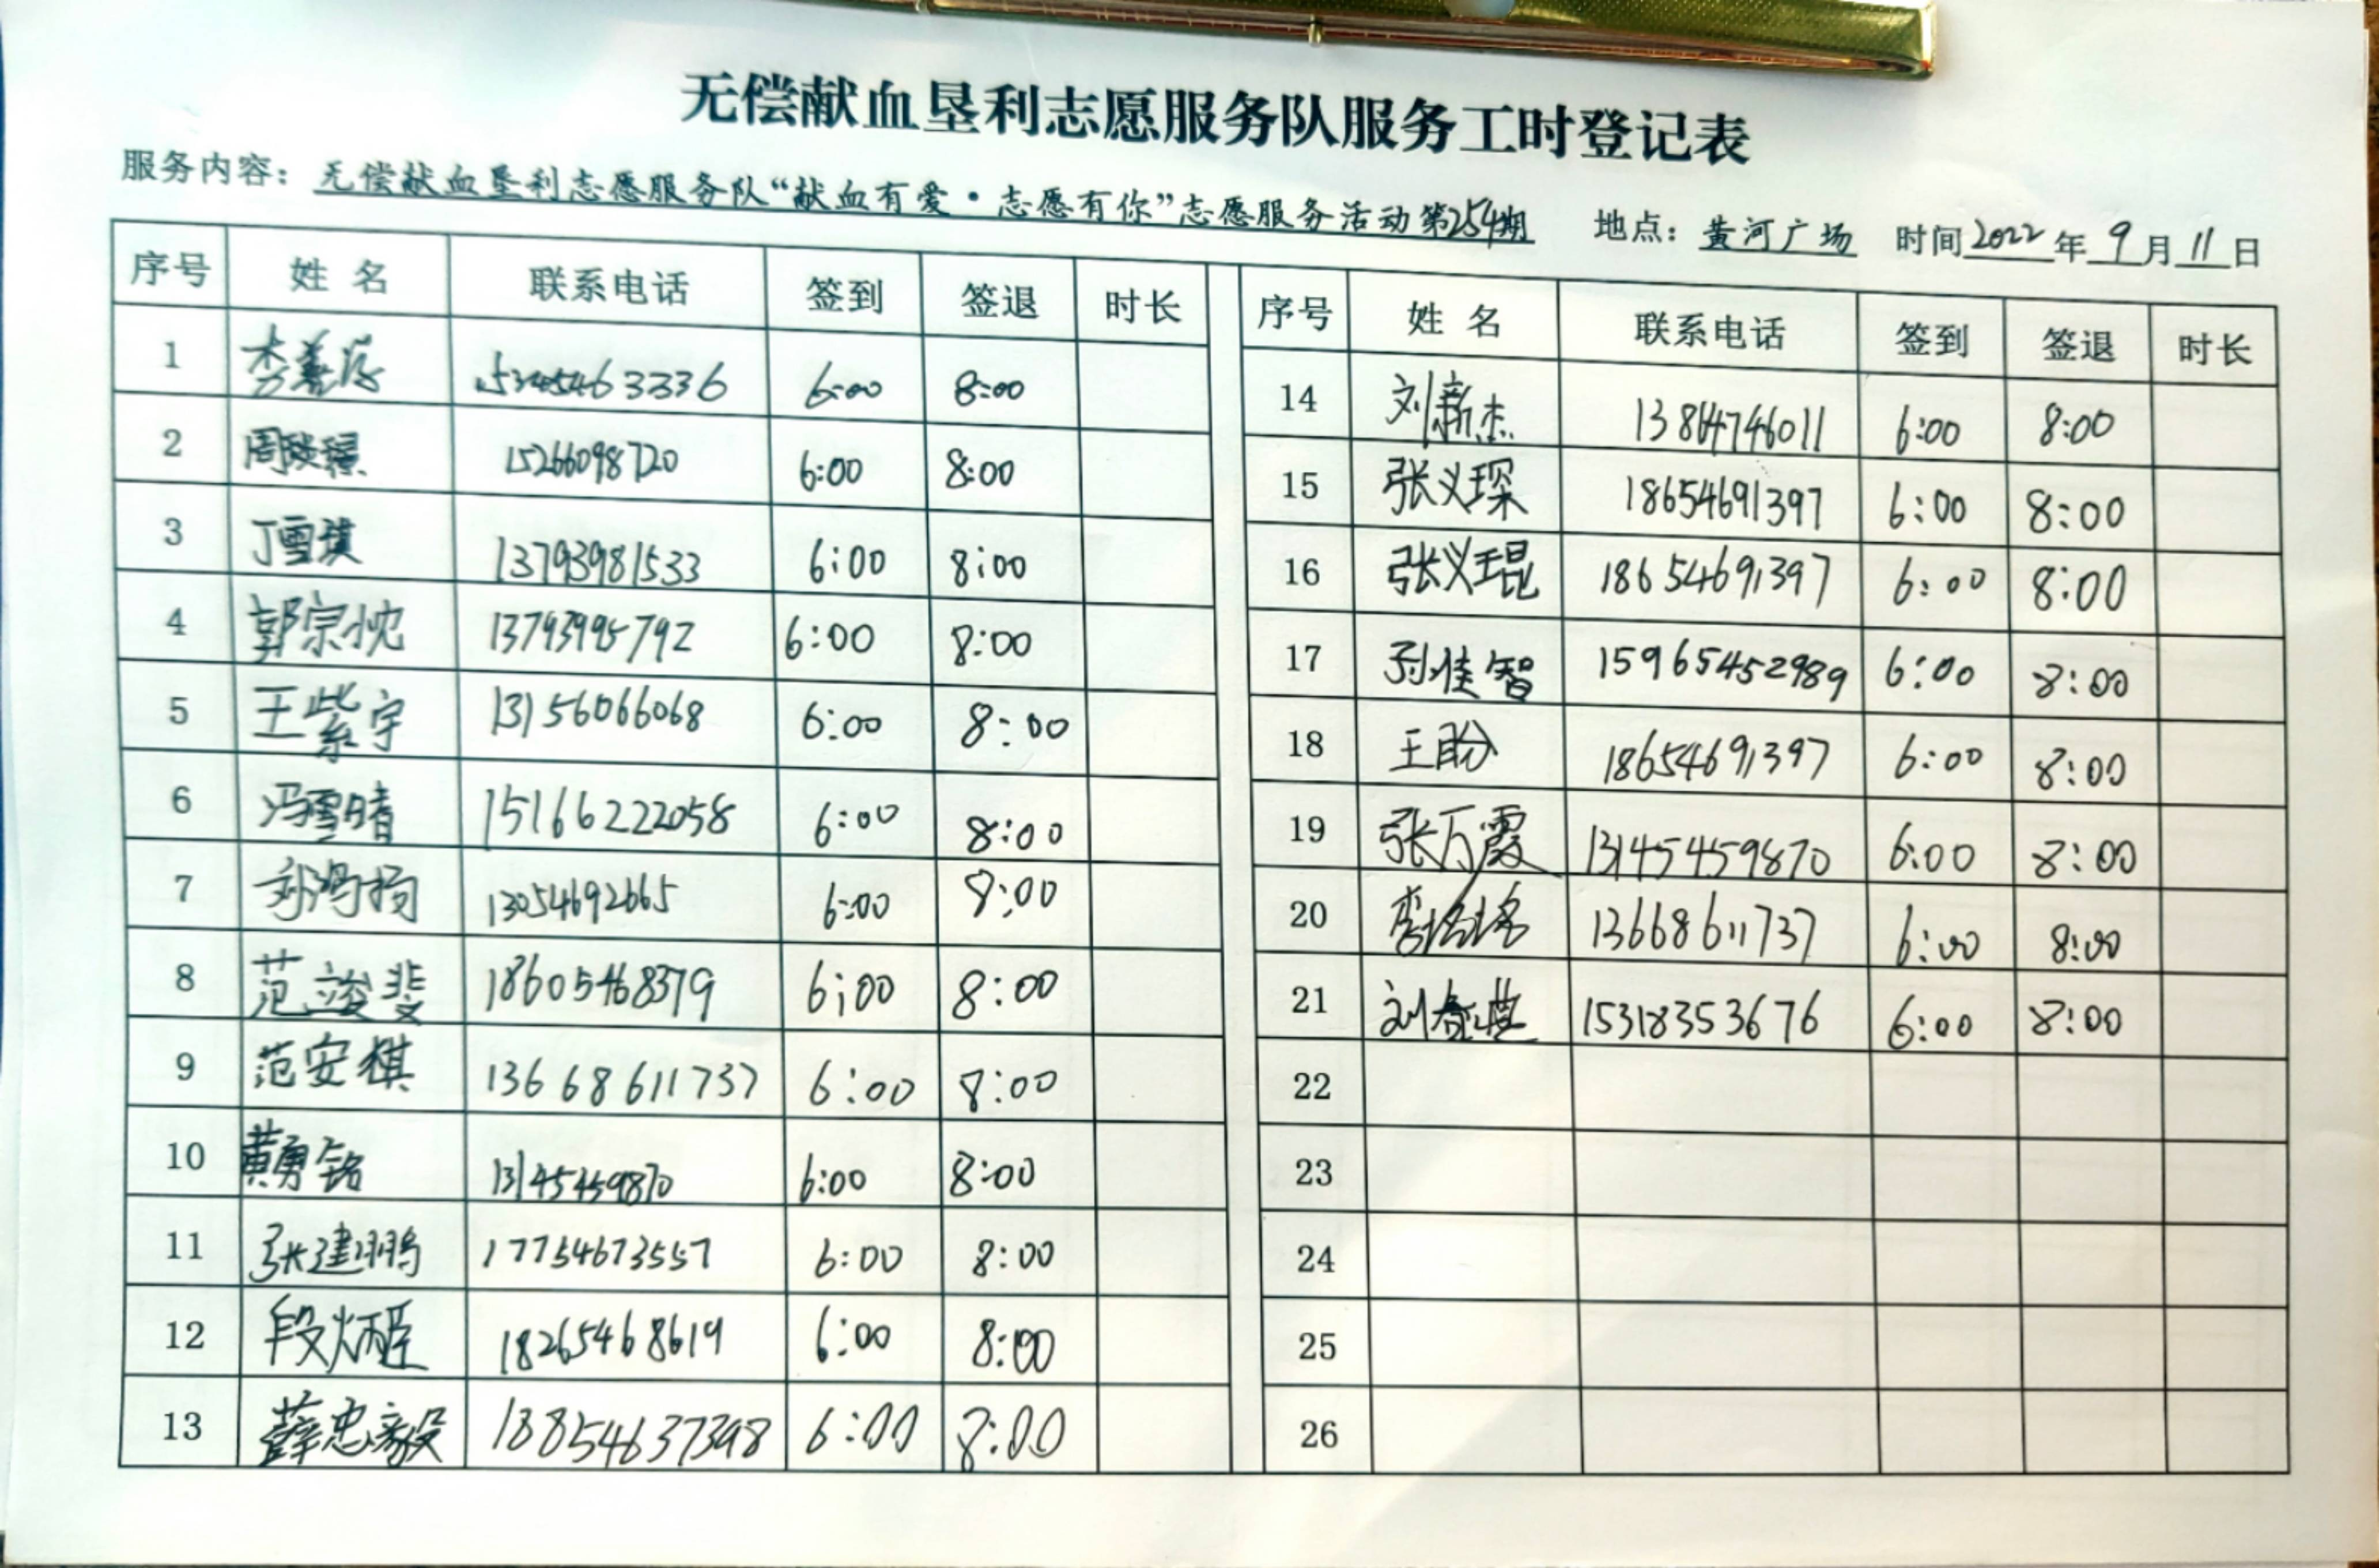 无偿献血垦利志愿服务队服务工时登记表
服务内容：无偿献血垦利志愿服务队“献血有爱·志愿有你”志愿服务活动第254期 地点：黄河广场 时间2022年9月11日
序号 姓名 联系电话 签到 签退 时长
1 15345463336 6:00 8:00
2 15266098720 6:00 8:00
3 丁雪琪 13793981533 6:00 8:00
4 郭宗忱 13793995792 6:00 8:00
5 王紫宇 13156066068 6:00 8:00
6 冯雪晴 15166222058 6:00 8:00
7 13054692665 6:00 8:00
8 范竣斐 18605468379 6:00 8:00
9 范安棋 13668611737 6:00 8:00
10 黄勇铭 13145459870 6:00 8:00
11 张建鹏 17754673557 6:00 8:00
12 段炳臣 18265468619 6:00 8:00
13 薛忠毅 18854637398 6:00 8:00
序号 姓名 联系电话 签到 签退 时长
14 刘新杰 13864746011 6:00 8:00
15 张义琛 18654691397 6:00 8:00
16 张义琨 18654691397 6:00 8:00
17 孙佳智 15965452989 6:00 8:00
18 王盼 18654691397 6:00 8:00
19 张万霞 13145459870 6:00 8:00
20 13668611737 6:00 8:00
21 15318353676 6:00 8:00
22
23
24
25
26